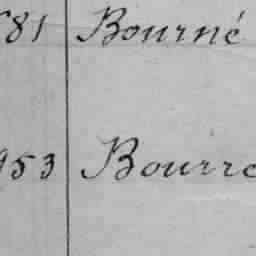 81 Bourné
953 Bourre